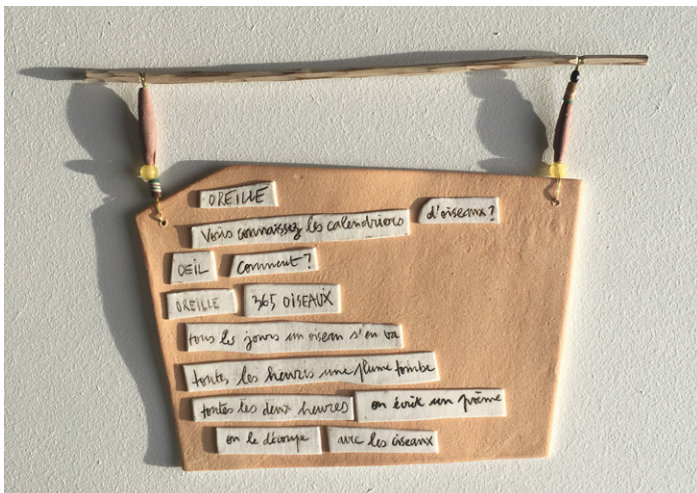 OREILLE
Vous connaissez les calendriers d'oiseaux?
ŒIL comment?
OREILLE 365 OISEAUX
tous les jours un oiseau s'en va
toutes les heures une plume tombe
toutes les deux heures on écrit un poème
on le découpe avec les ciseaux